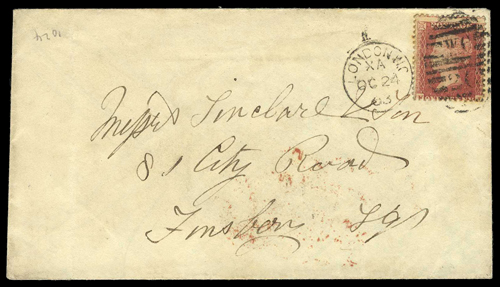 1024
LONDON.N.C
XA
OC 24
63
Messrs Sinclair & Son
81 City Road
Finsbury Sqr